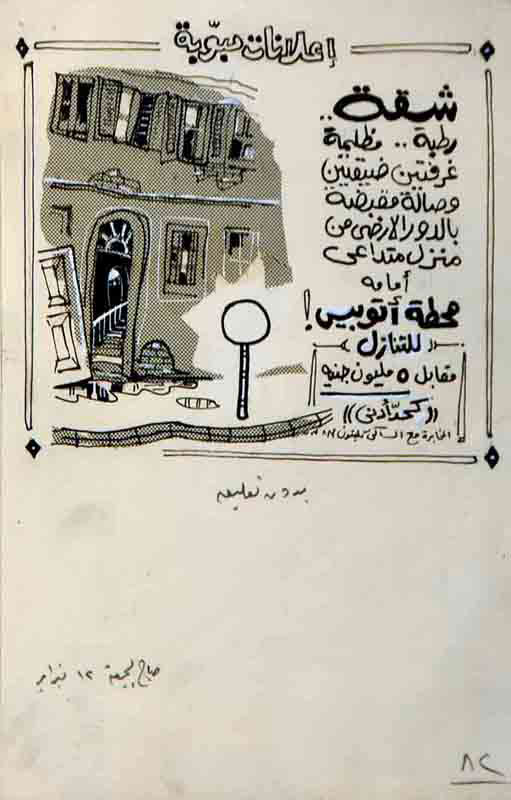 إعلانات مبوّبة
شقة..
رطبة.. مظلمة
غرفتين ضيقيين
وصالة مقبضة
بالدور الأرضى من
منزل متداعى
أمامه
محطة أتوبيس!
للتنازل
مقابل ٥ مليون جنيه
((كحدّ أدنى))
المخابرة مع الساكن تليفون
بدون تعليق
صباح الجمعة ١٢ فبراير
٨٢